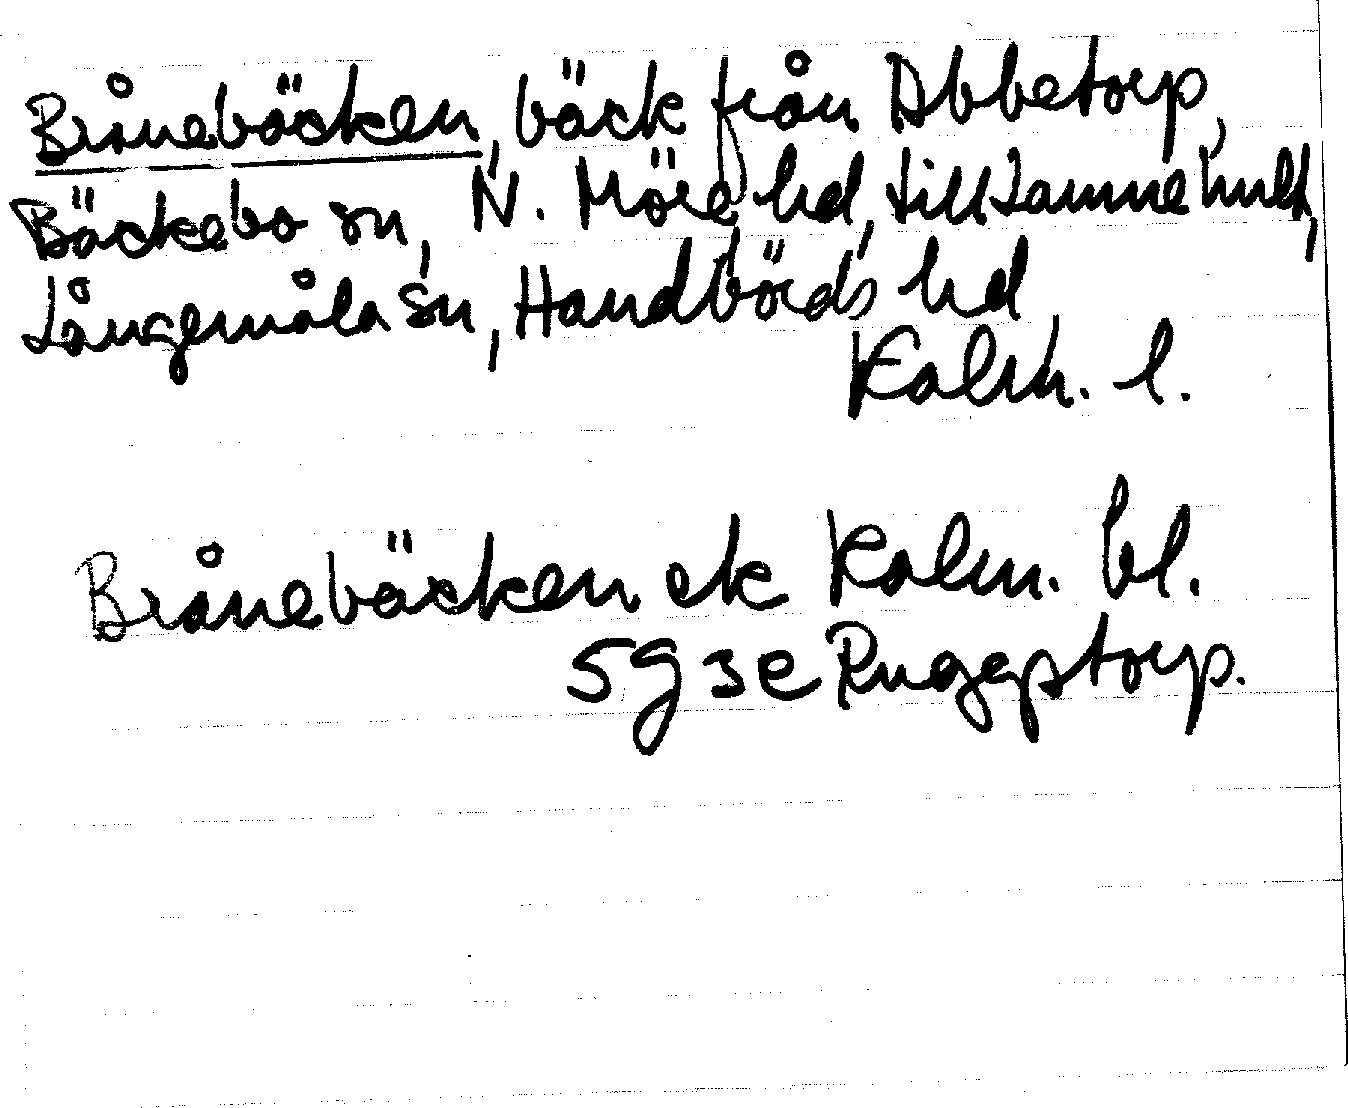 Bråneböcken, bäck från Abbetorp,
Bäckebo sn, N. Möre hd, till Lamnehult,
Långemåla sn, Handbörds hd
Kalm. l.
Brånebäcken ek Kalm. bl.
5g 3e Rugeptorp.